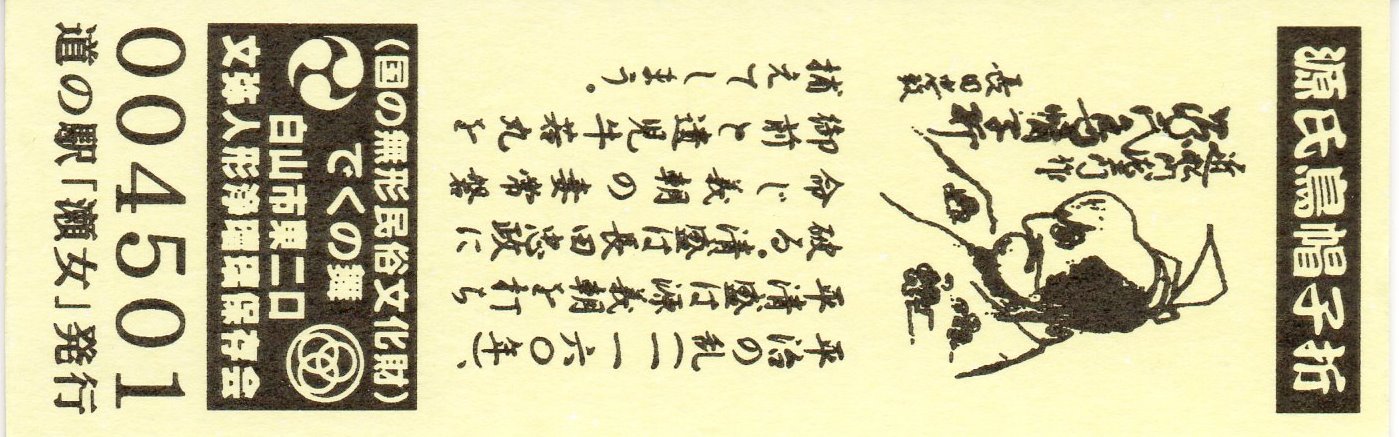 源氏烏帽子折
近松門左衛門作
源氏烏帽子折
長田忠致
平治の乱(一一六〇年)、
平清盛は源義朝を打ち
破る。清盛は長田忠政に
命じ義朝の妻常盤
御前と遺児牛若丸を
捕えてしまう。
(国の無形民俗文化財)
でくの舞
白山市東二口
文弥人形浄瑠璃保存会
004501
道の駅「瀬女」発行